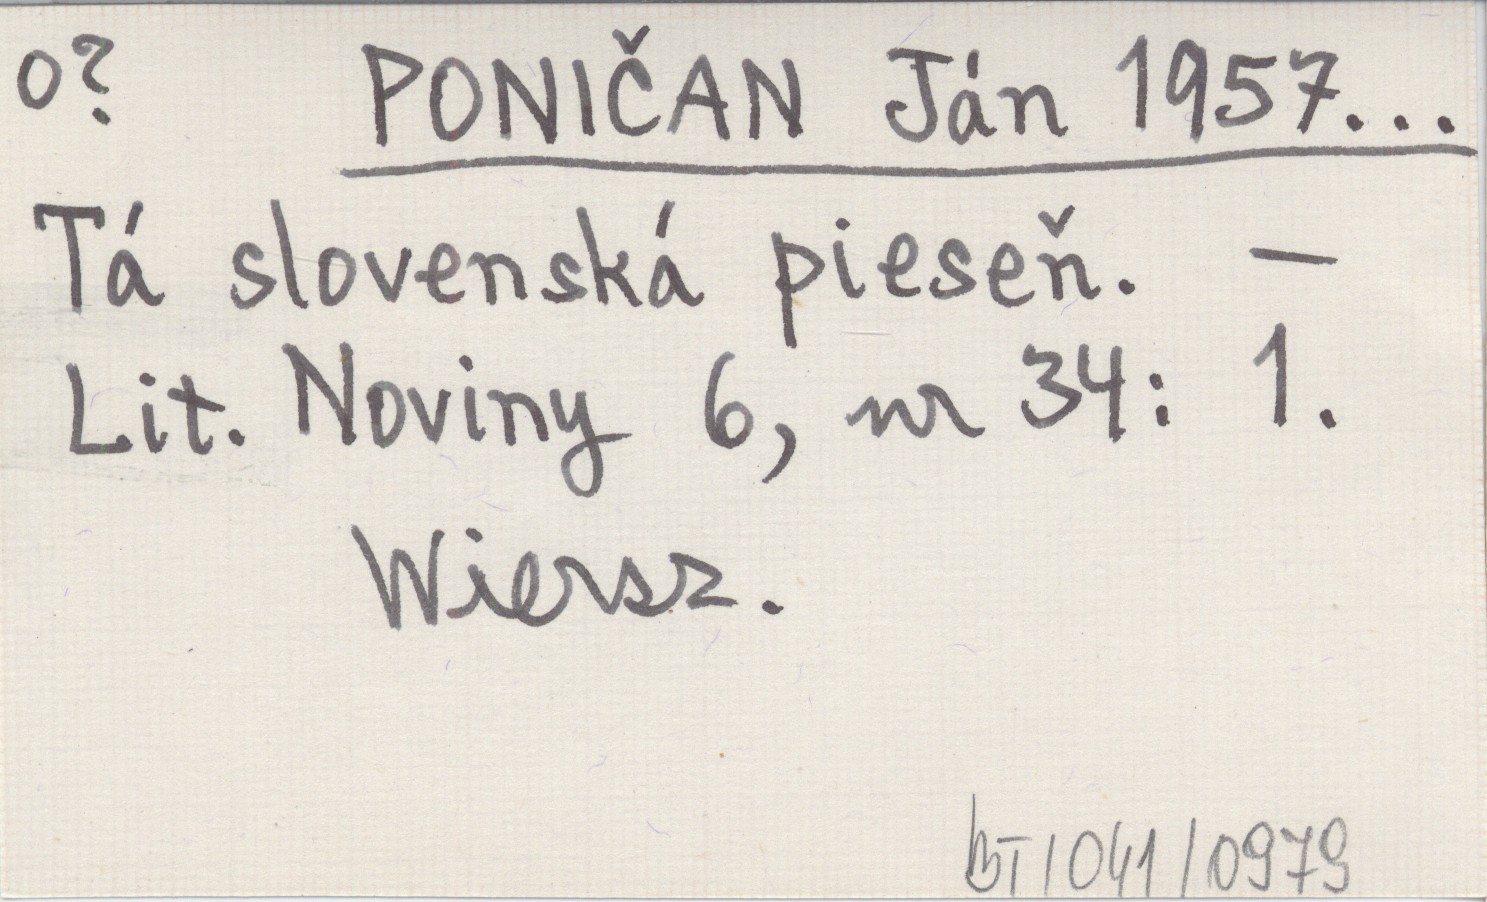 o? PONIČAN Ján 1957...
Tá slovenská pieseň. —
Lit. Noviny 6, nr 34: 1.
Wiersz.
BT/041/0979